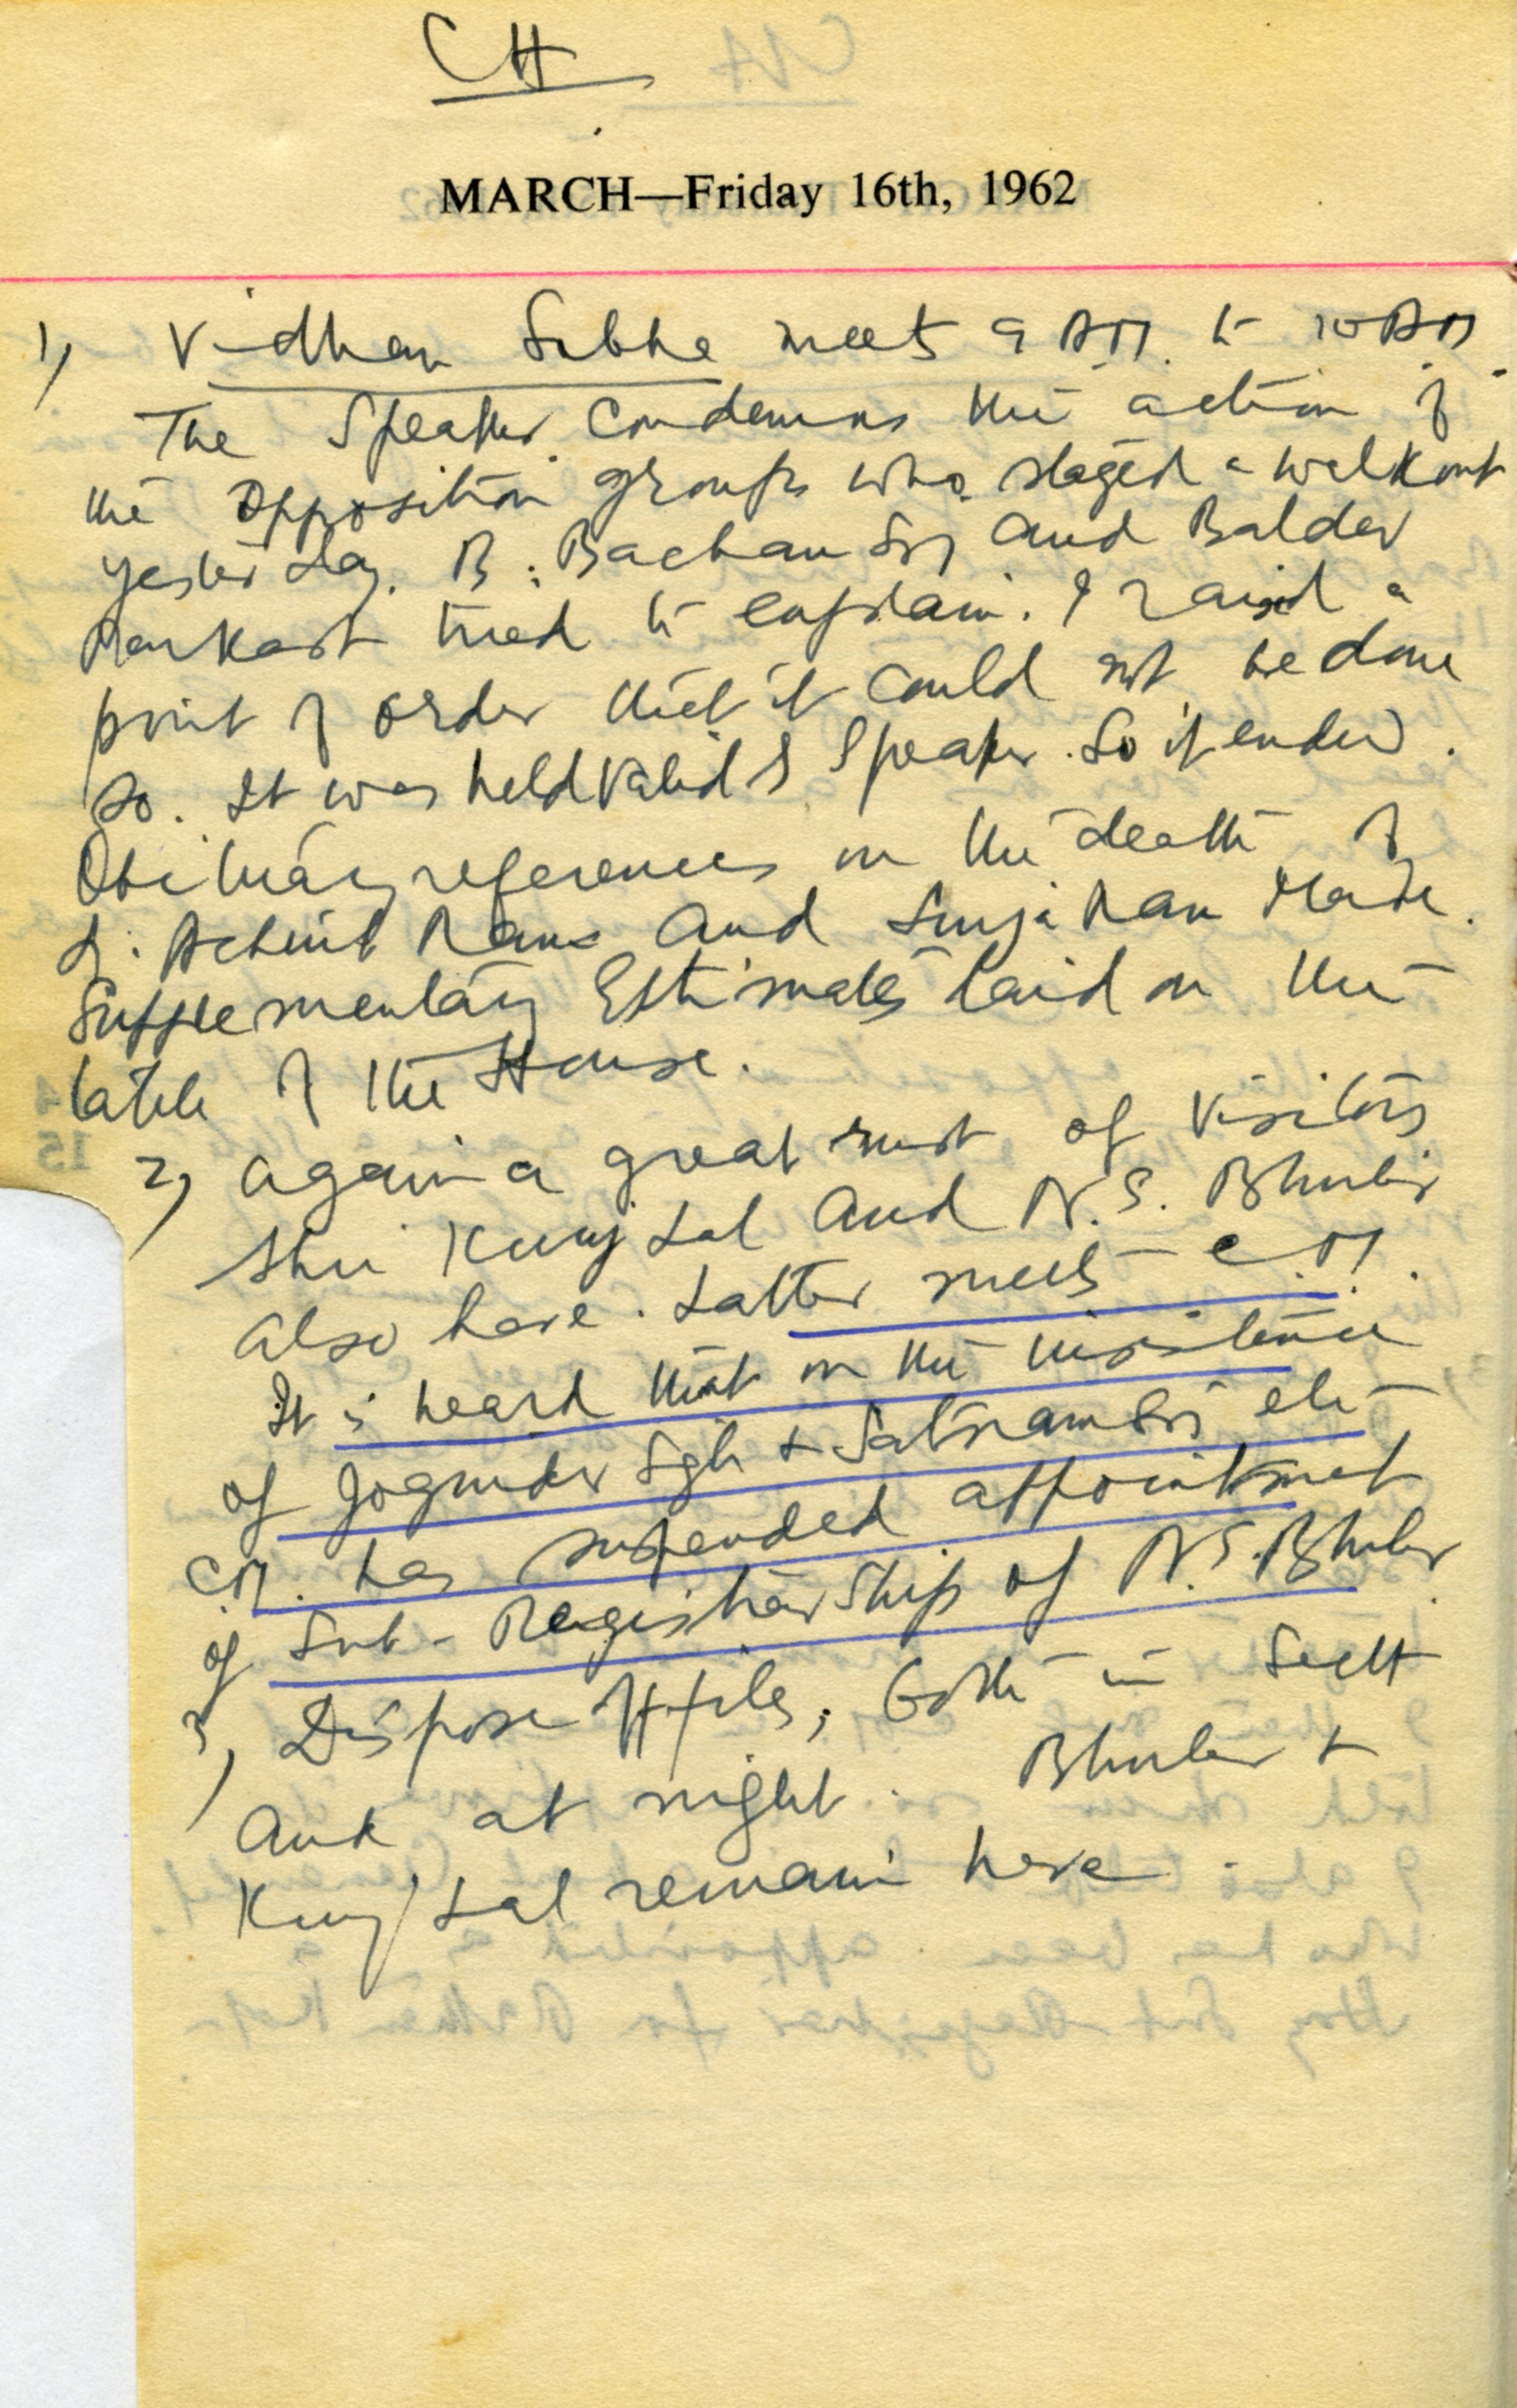 CH
MARCH—Friday 16th, 1962
1) Vidhan Sabha meets 9 A.M. to 10 A.M.
The Speaker condemns the action of
the opposition groups who staged a walkout
yesterday. B. Bachan Sgh and Baldev
Parkash tried to explain. I raised a
point of order that it could not be done
so. It was held valid by Speaker. So it ended.
Obituary references on the death of
L. Achint Ram and Ram made.
Supplementary Estimates laid on the
table of the House.
2) Again a great rush of visitors
Shri Kunj Lal and N.S. Bhuler
also here. Latter meets C.M.
It is heard that on the insistence
of Joginder Sgh & Satnam Sgh etc
C.M. has suspended appointment
of Sub-Registrarship of N.S. Bhuler
3) Dispose off files, both in Sectt
and at night. Bhuler &
Kunj Lal remain here